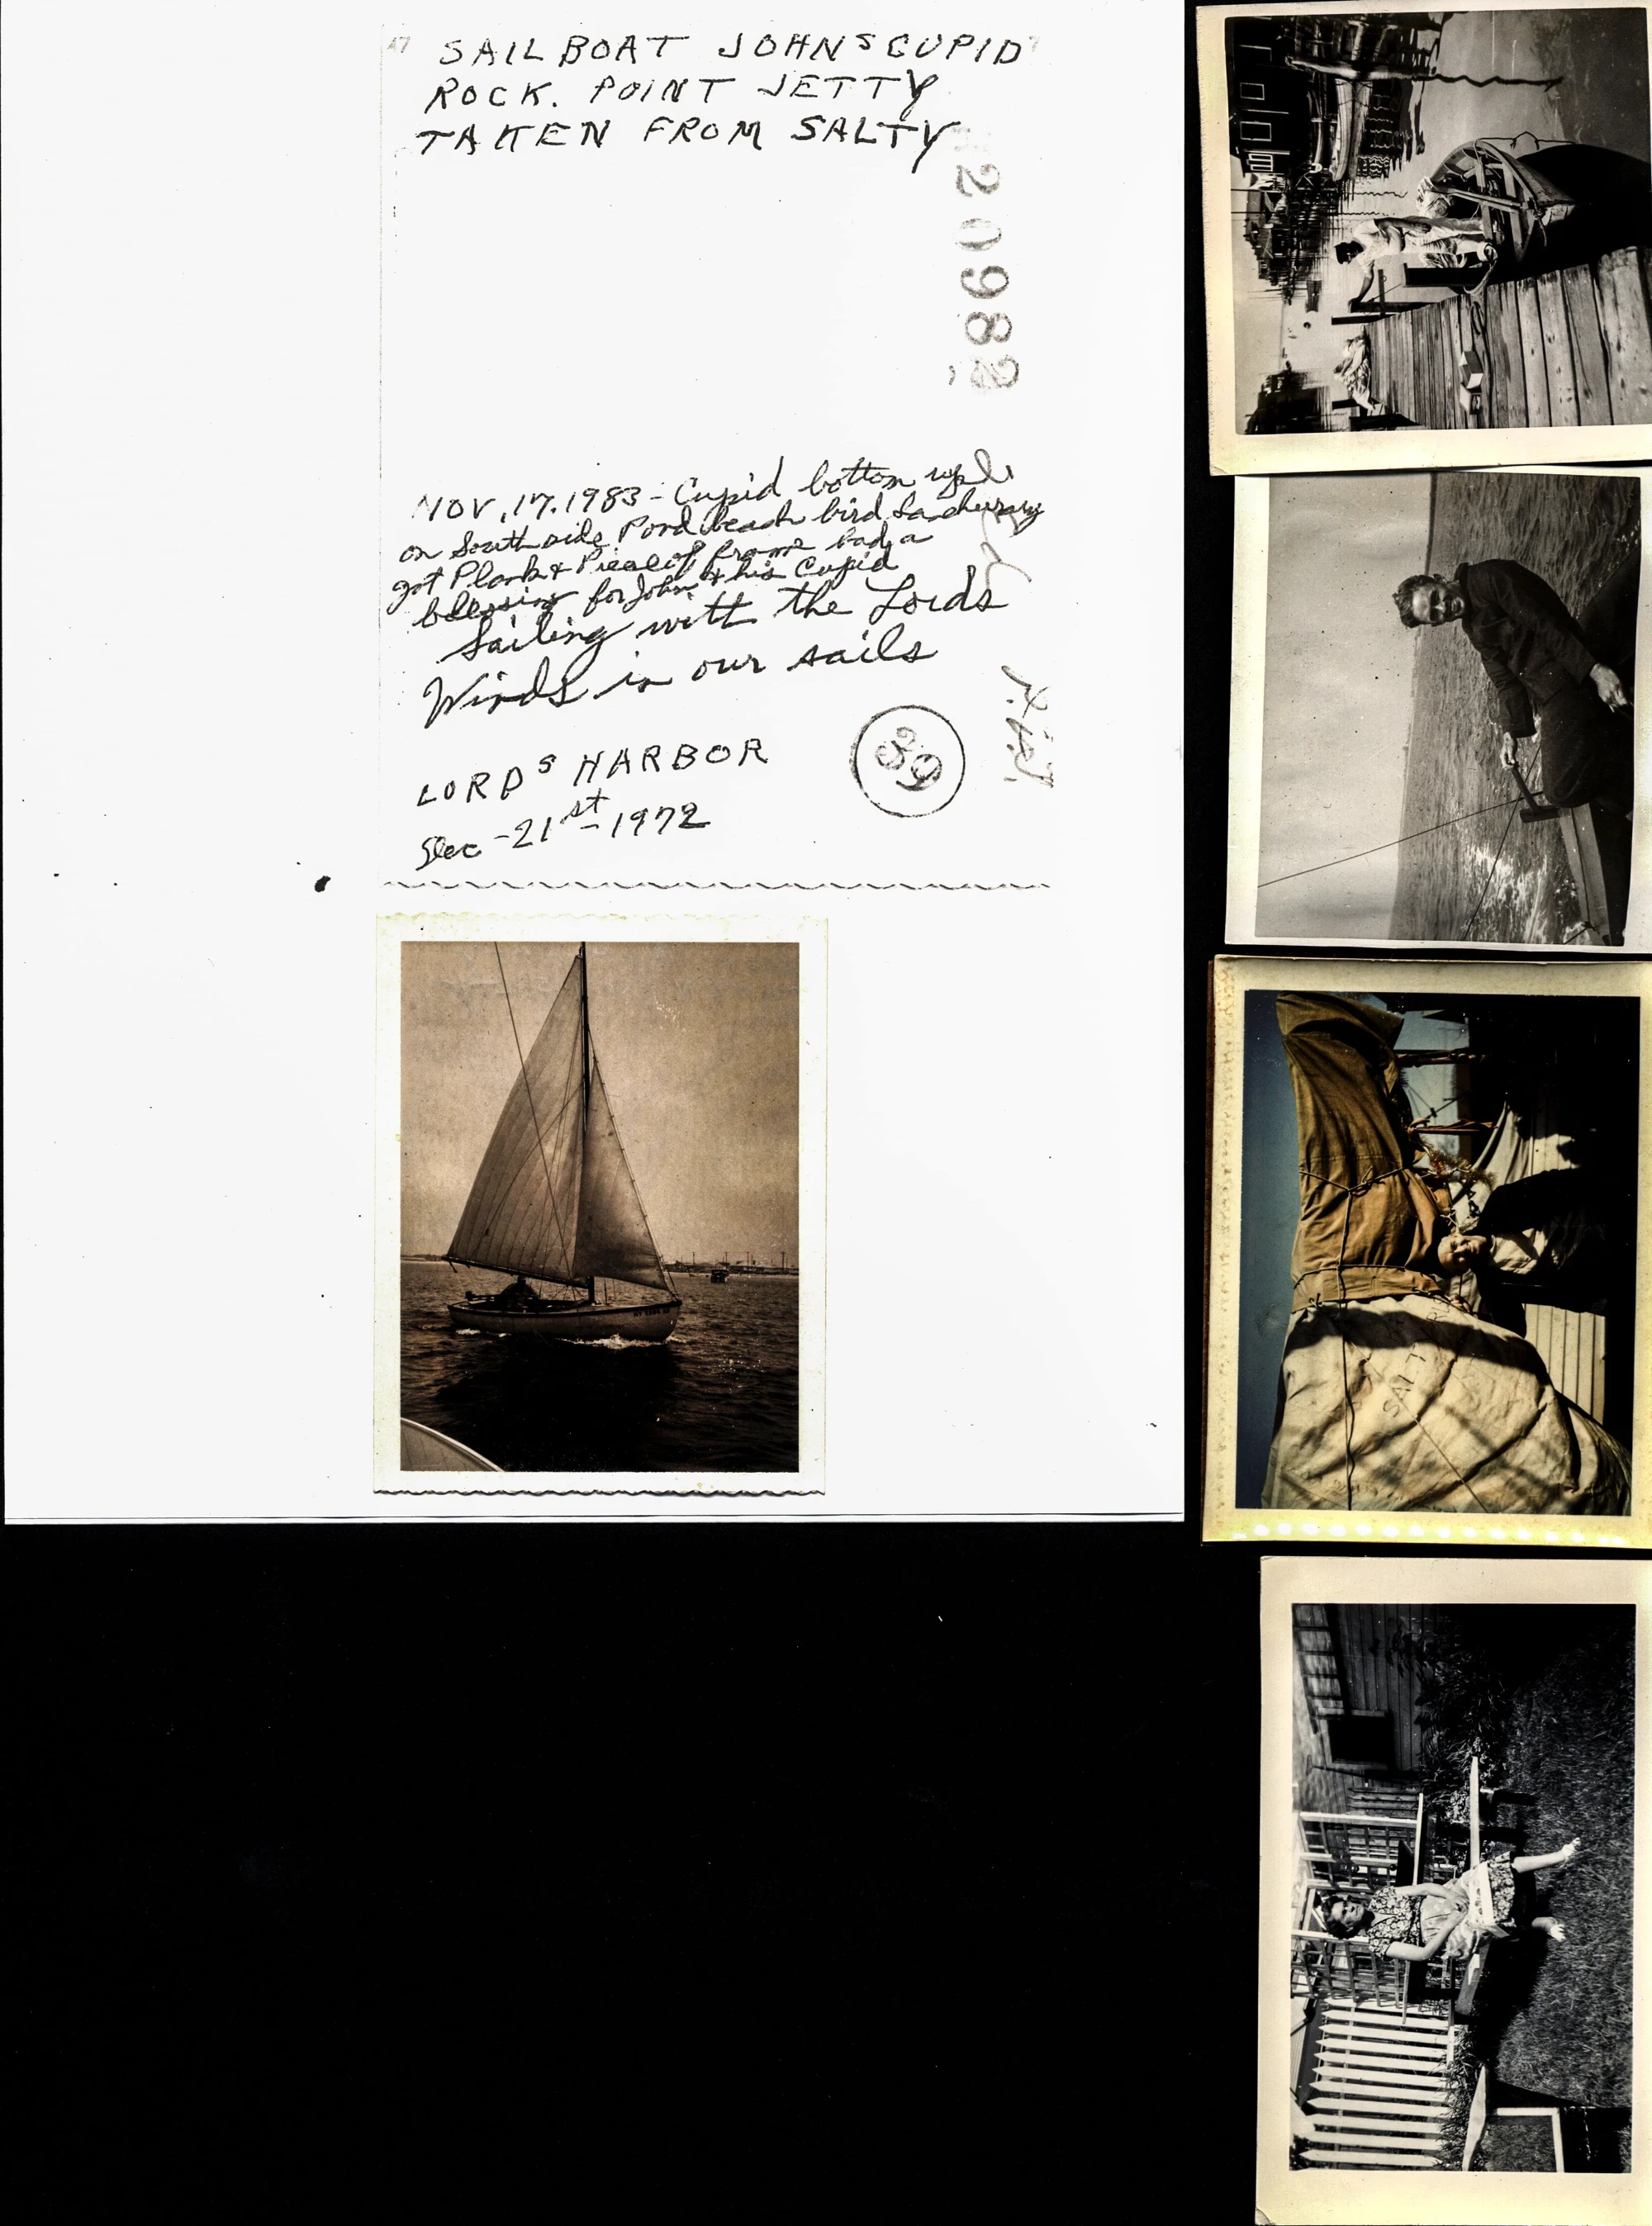 SAILBOAT JOHNS CUPID
ROCK. POINT JETTY
TAKEN FROM SALTY
2098
NOV, 17. 1983 - Cupid bottom up
on South side Pond beach bird
got Plank & Piece of frame had a
blessing for John & his Cupid
Sailing with the Lords
Winds in our sails
LORDS HARBOR
Dec - 21st - 1972
39
SALTY